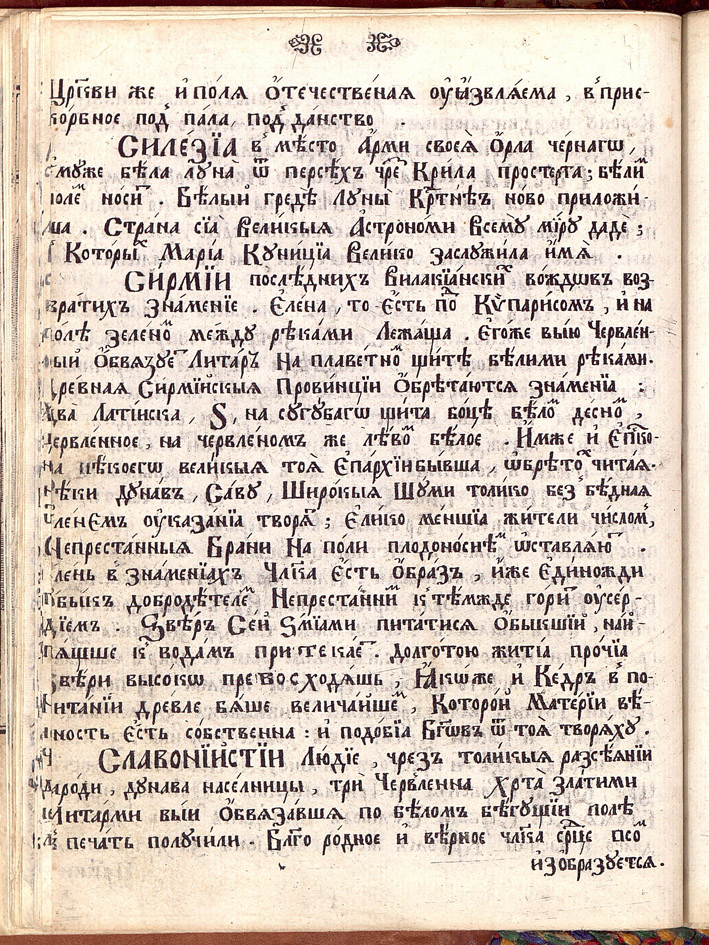 Црⷭ҇кви же и҆ поля ѻ҆те́чественая ᲂу҆ꙗзвля́ема , в̾ прис-
ко́рбное под̾ пала, под̾ да́нство
СИЛЕ́ЗЇА в̾ мѣ́сто А҆́рми своея̀ ѻ҆рла че́рнагѡ ,
є҆муже бѣ́ла лꙋна̀ ѿ пе́рсѣхъ чре́ Кри́ла про́стерта ; бѣлїи
поле̑ носи́т . Бѣ́лый гредѣ̀ Лꙋны̀ Крⷭ҇тнѣъ но́во приложи́
ша . Стра́на сїа̀ вели́кыя А҆строно́ми всемꙋ̀ мі́рꙋ дадѐ ;
Кото́рыⷯ Марі́а Кꙋни́ціа Вели́ко заслꙋжи́ла и҆́мя .
СИ́РМЇИ послѣ́днихъ Вилакїа́нскиⷯ во́ждѡвъ воз-
вра́тихъ зна́менїе . Еле́на , то-Е҆́сть поⷣ Кѷпари́сомъ , и҆ на
полѣ̀ зеле́ноⷨ ме́ждꙋ рѣка́ми Лежа́ша . Е҆го́же вы́ю Червле́н-
ный ѻ҆бвязꙋ́еⷮ Лита́ръ на пла́ветноⷨ щи́тѣ бѣ́лими рѣка́ми.
Дре́вная Си́рмїйскыя Прови́нцїи ѻ҆брѣта́ются зна́менїа :
Два Лати́нска , S , на сꙋгꙋ́багѡ щи́та бо́цѣ бѣ́лоⷨ десно́ⷨ ,
черв́ленное , на черв́леномъ же лѣ́воⷨ бѣ́лое . И҆́мже и҆ Е҆пⷭ҇ко-
па нѣ́коегѡ вели́кыя тоя̀ Е҆па́рхїи бы́вша , ѡ҆брѣ́тоⷯ чита́я.
Рѣ́ки дꙋна́въ , Са́вꙋ , Широ́кыя Шꙋ́ми толи́ко без̾ бѣ́дная
є҆ле́немъ ᲂу҆каза́нїа творя́ⷮ ; є҆ли́ко ме́ншїа жи́тели число́м̾,
Непреста́нныя Бра́ни На по́ли плодоно́сиѣⷨ ѡ҆ставля́юⷮ .
Еле́нь в̾ зна́менїахъ Члⷡ҇ка Е҆́сть ѻ҆́бразъ , и҆́же Е҆ди́ножди
ѻ҆бы́къ добродѣ́телеⷨ Непреста́нниⷨ к̾ тѣ́мжде гори́ⷮ ᲂу҆се́р-
дїемъ . Ѕвѣ́рь Се́й Ѕмїа́ми пита́тися ѻ҆бы́кшїй , най-
па́щше к̾ вода́мъ притека́еⷮ . Долгото́ю житїа̀ про́чїа
звѣ́ри высокѡ превосходя́щь , Ꙗ҆кѡ́же и҆ Ке́дръ в̾ по-
чита́нїи дре́вле бя́ше велича́йшеⷨ , Кото́рой Мате́рїи вѣ́-
чность Е҆́сть со́бственна : и҆ подо́бїа Бг҃ѡ́въ ѿ тоя̀ творя́хꙋ .
СЛАВОНЇ́ЙСТЇИ Лю́дїе , чрез̾ толи́кыя разсѣ́янїи
наро́ди , дꙋна́ва насе́лницы , трѝ Черв́ленна Хр́та̀ зла́тими
Лита́рми вы́и ѻ҆бвяза́вшя по бѣ́ломъ бѣгꙋ́щїи полѣ
за печа́ть полꙋчи́ли . Бл҃го ро́дное и҆ вѣ́рное члⷡ҇ка се́рⷣце псо́ⷨ
и҆зобразꙋ́ется .